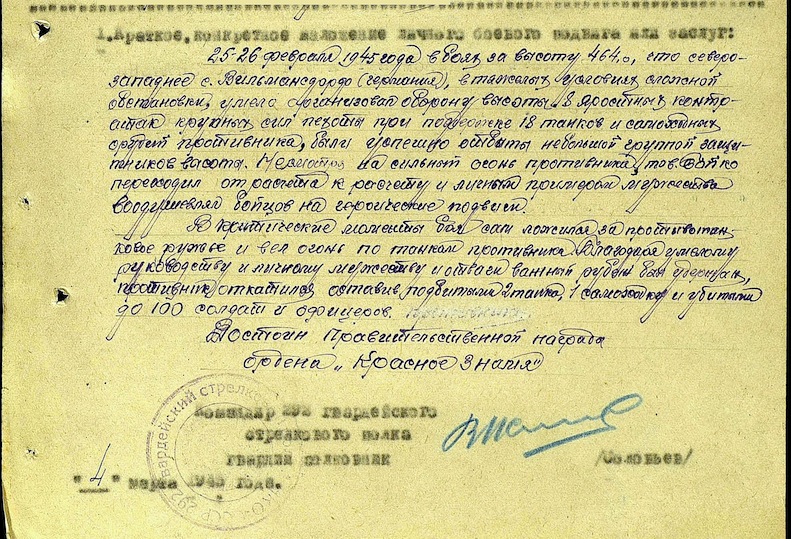 1.Краткое, конкретное изложение личного боевого подвига или заслуг:
25-26 февраля 1945 года в боях за высоту 464.0, что северо-
западнее с. Вильмансдорф (Германия), в тяжелых условиях сложной
обстановки, умело организовал оборону высоты. 8 яростных контр-
атак крупных сил пехоты при поддержке 18 танков и самоходных
орудий противника, были успешно отбиты небольшой группой защи-
тников высоты. Несмотря на сильный огонь противника, тов. Бойко
переходил от расчета к расчету и личным примером мужества
воодушевлял бойцов на героические подвиги.
В критические моменты боя сам ложился за противотан-
ковое ружье и вел огонь по танкам противника. Благодаря умелому
руководству и личному мужеству и отваги занный рубеж был удержан,
противник откатился оставив подбитыми 2 танка, 1 самоходку и убитыми
до 100 солдат и офицеров.
Достоин Правительственной награда
ордена „Красное Знамя"
Командир 292 гвардейского
стрелкового полка
гвардии полковник /Соловьев/
"4" марта 1945 года.
292 гвардейский стрелко